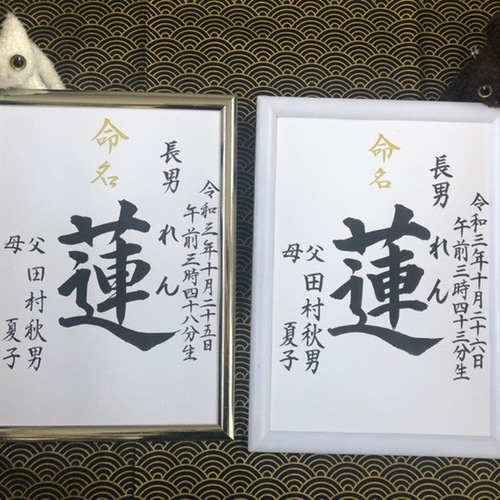 命名
長男
蓮
れん
令和三年十月二十五日
午前三時四十八分生
父 田村秋男
母 夏子
命名
長男
蓮
れん
令和三年十月二十六日
午前三時四十三分生
父 田村秋男
母 夏子